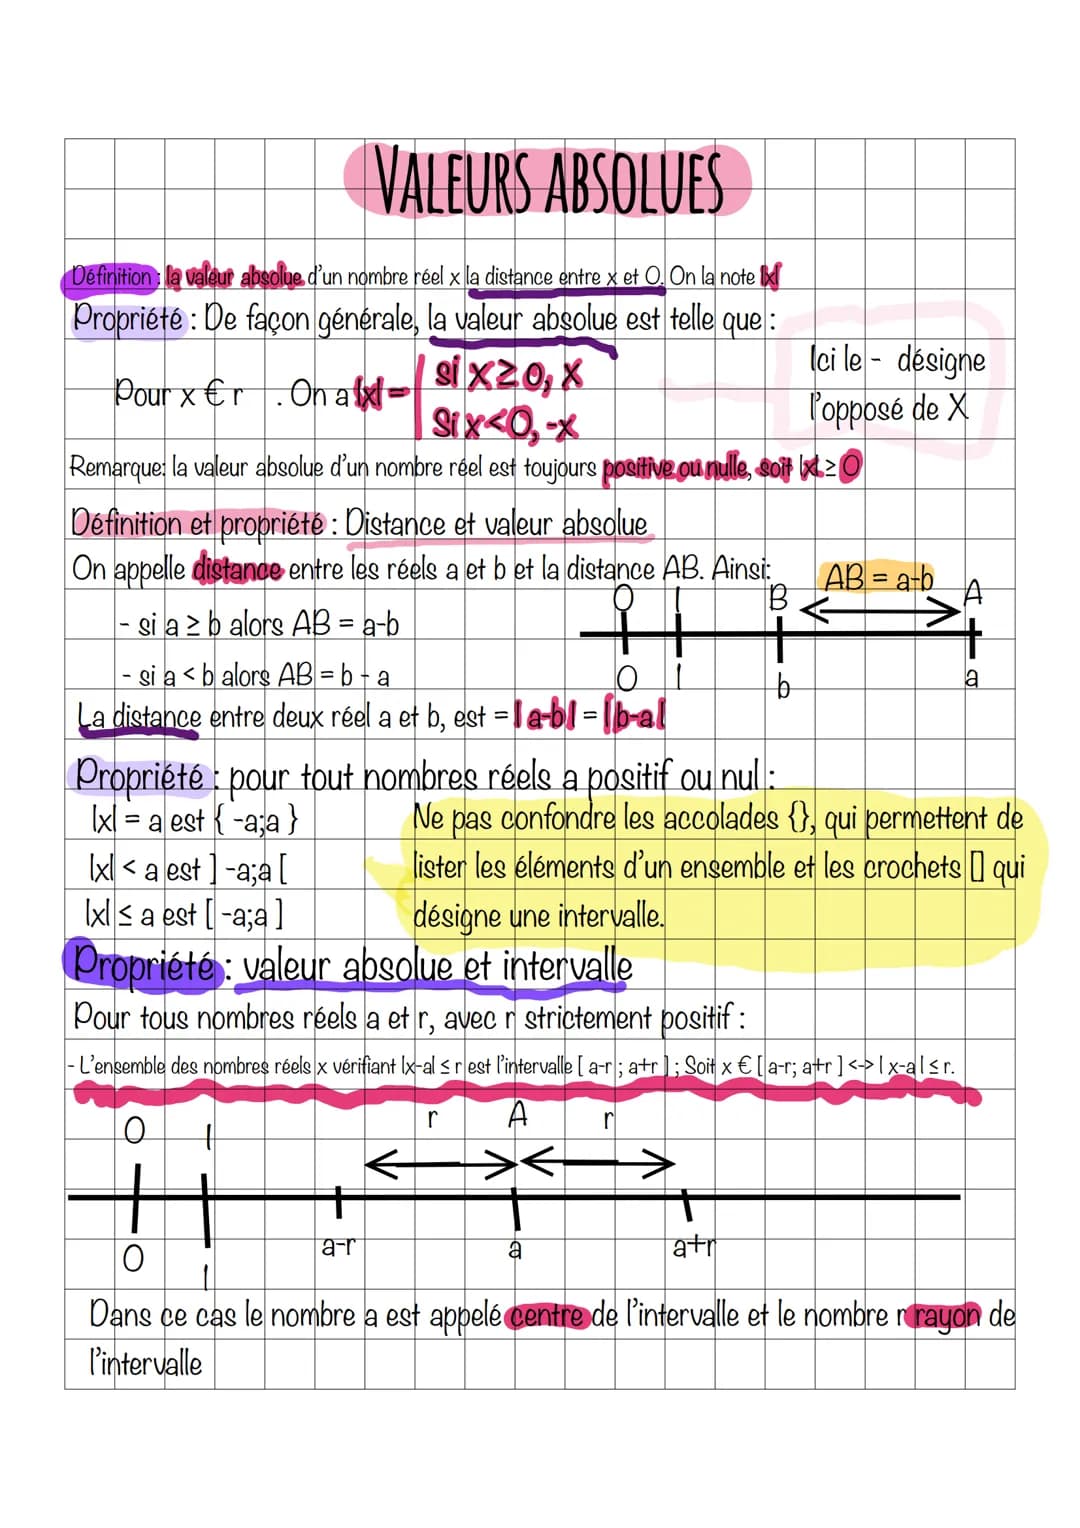 VALEURS ABSOLUES
Définition : la valeur absolue d'un nombre réel x la distance entre x et 0. On la note |x|
Propriété : De façon générale, la valeur absolue est telle que :
Pour x € r . On a |x| =
si x≥0, x
Si x<0, -x
Ici le - désigne
l'opposé de X
Remarque: la valeur absolue d'un nombre réel est toujours positive ou nulle, soit |x| ≥ 0
Définition et propriété : Distance et valeur absolue
On appelle distance entre les réels a et b et la distance AB. Ainsi:
- si a ≥ b alors AB = a-b
- si a < b alors AB = b - a
AB = a-b
O I B A
0 1 b a
La distance entre deux réel a et b, est = |a-b| = |b-a|
Propriété : pour tout nombres réels a positif ou nul :
|x| = a est { -a;a }
|x| < a est ] -a;a [
|x| ≤ a est [ -a;a ]
Ne pas confondre les accolades {}, qui permettent de
lister les éléments d'un ensemble et les crochets [] qui
désigne une intervalle.
Propriété : valeur absolue et intervalle
Pour tous nombres réels a et r, avec r strictement positif :
- L'ensemble des nombres réels x vérifiant |x-a| ≤ r est l'intervalle [ a-r ; a+r ] ; Soit x € [ a-r; a+r ] <-> | x-a | ≤ r.
O I r A r
0 1 a-r a a+r
Dans ce cas le nombre a est appelé centre de l'intervalle et le nombre r rayon de
l'intervalle